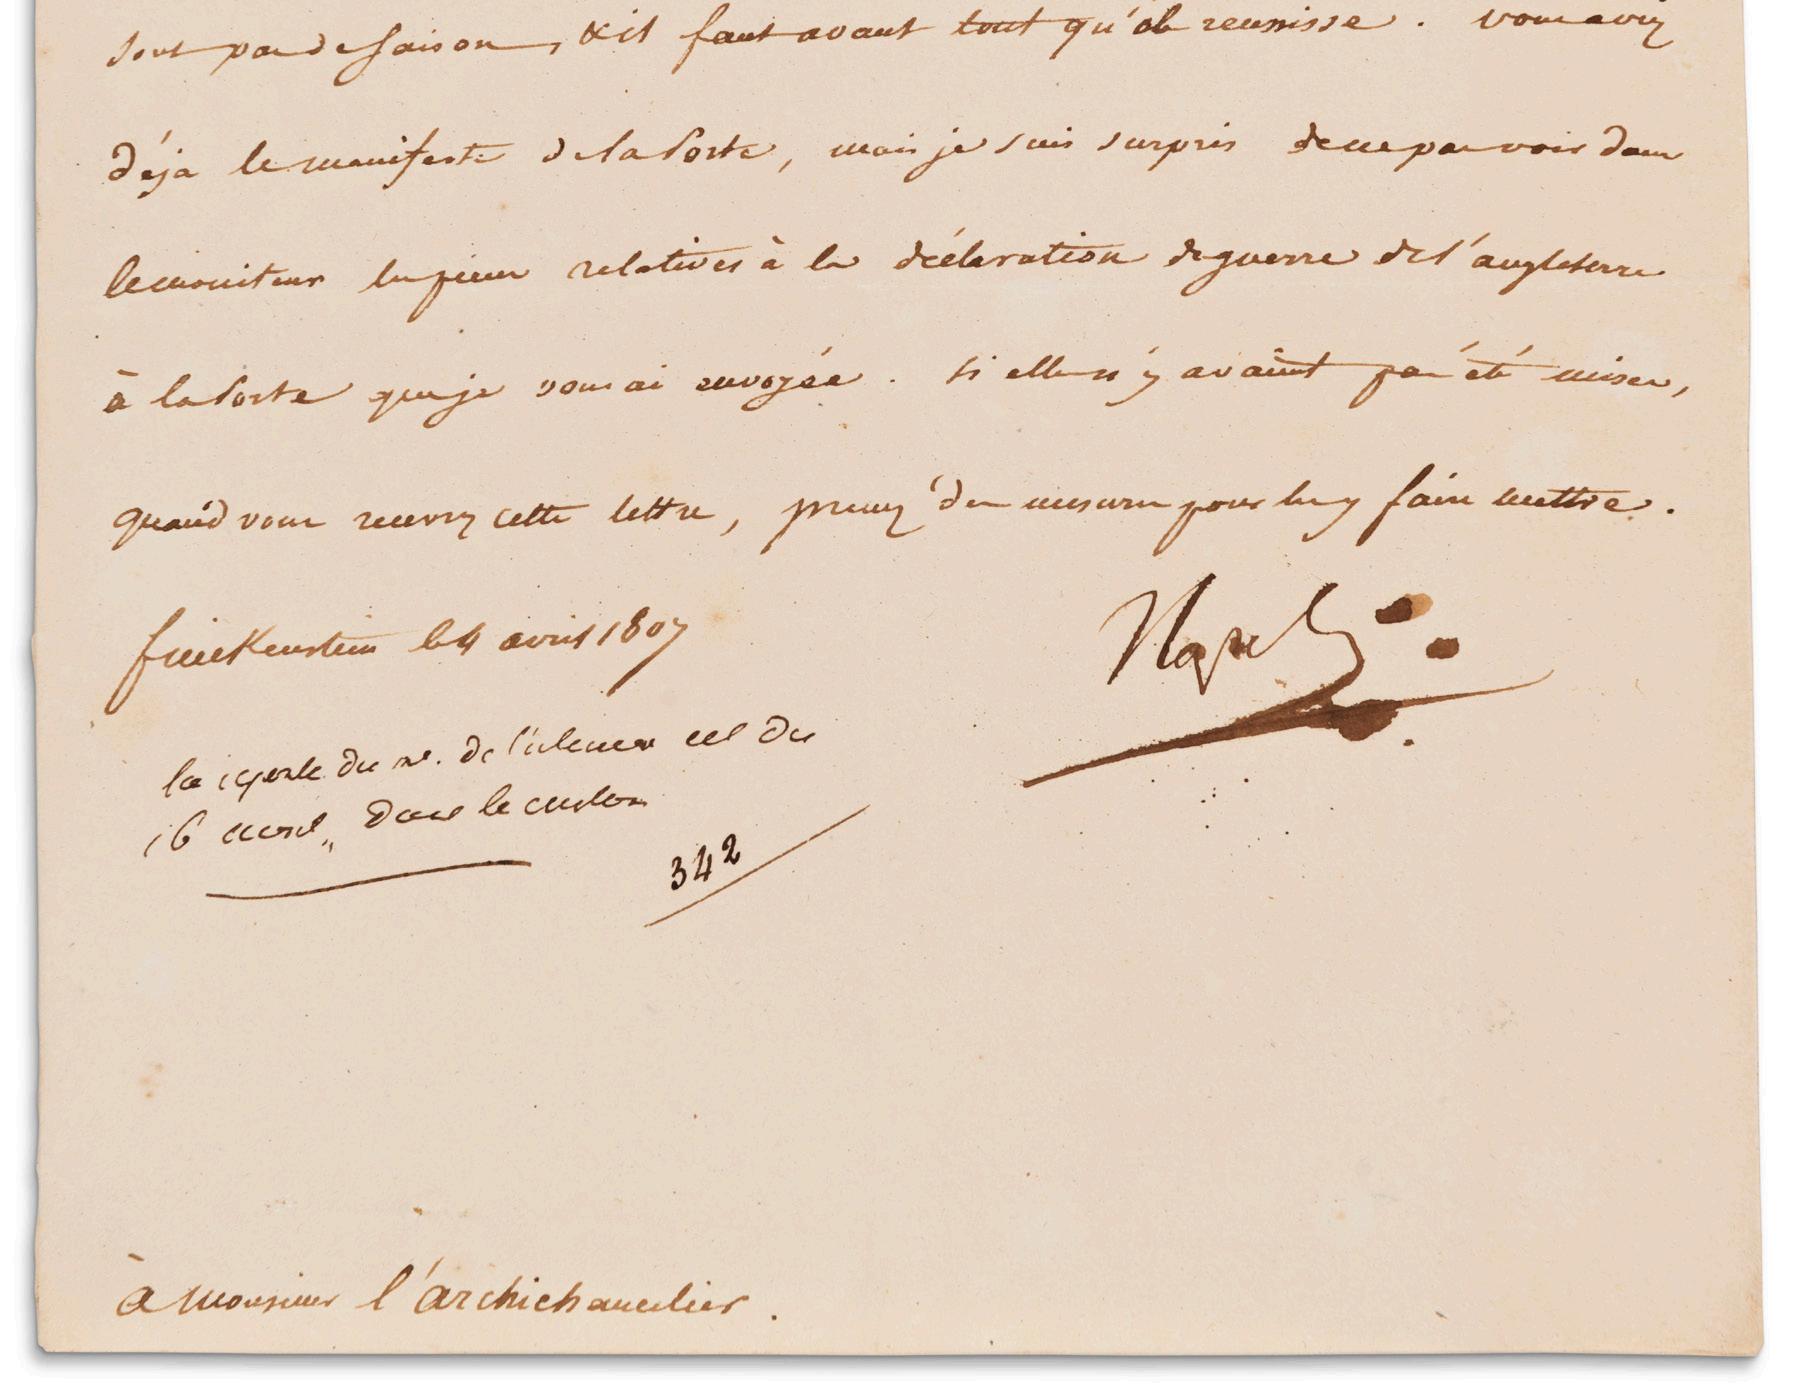 sont pas de saison, & il faut avant tout qu'ob reussisse. vous aviez
déja le manifeste de la Porte, mais je suis surpris de ne pas voir dans
le moniteur les pieces relatives à la déclaration de guerre de l'angleterre
à la Porte que je vous ai envoyée. si elles n'y avaient pas été mises,
quand vous recevrez cette lettre, prenez des mesures pour les y faire mettre.
finckenstein le 4 avril 1807
Napol
la du de du
16 dans le
342
à Monsieur l'archichancelier.